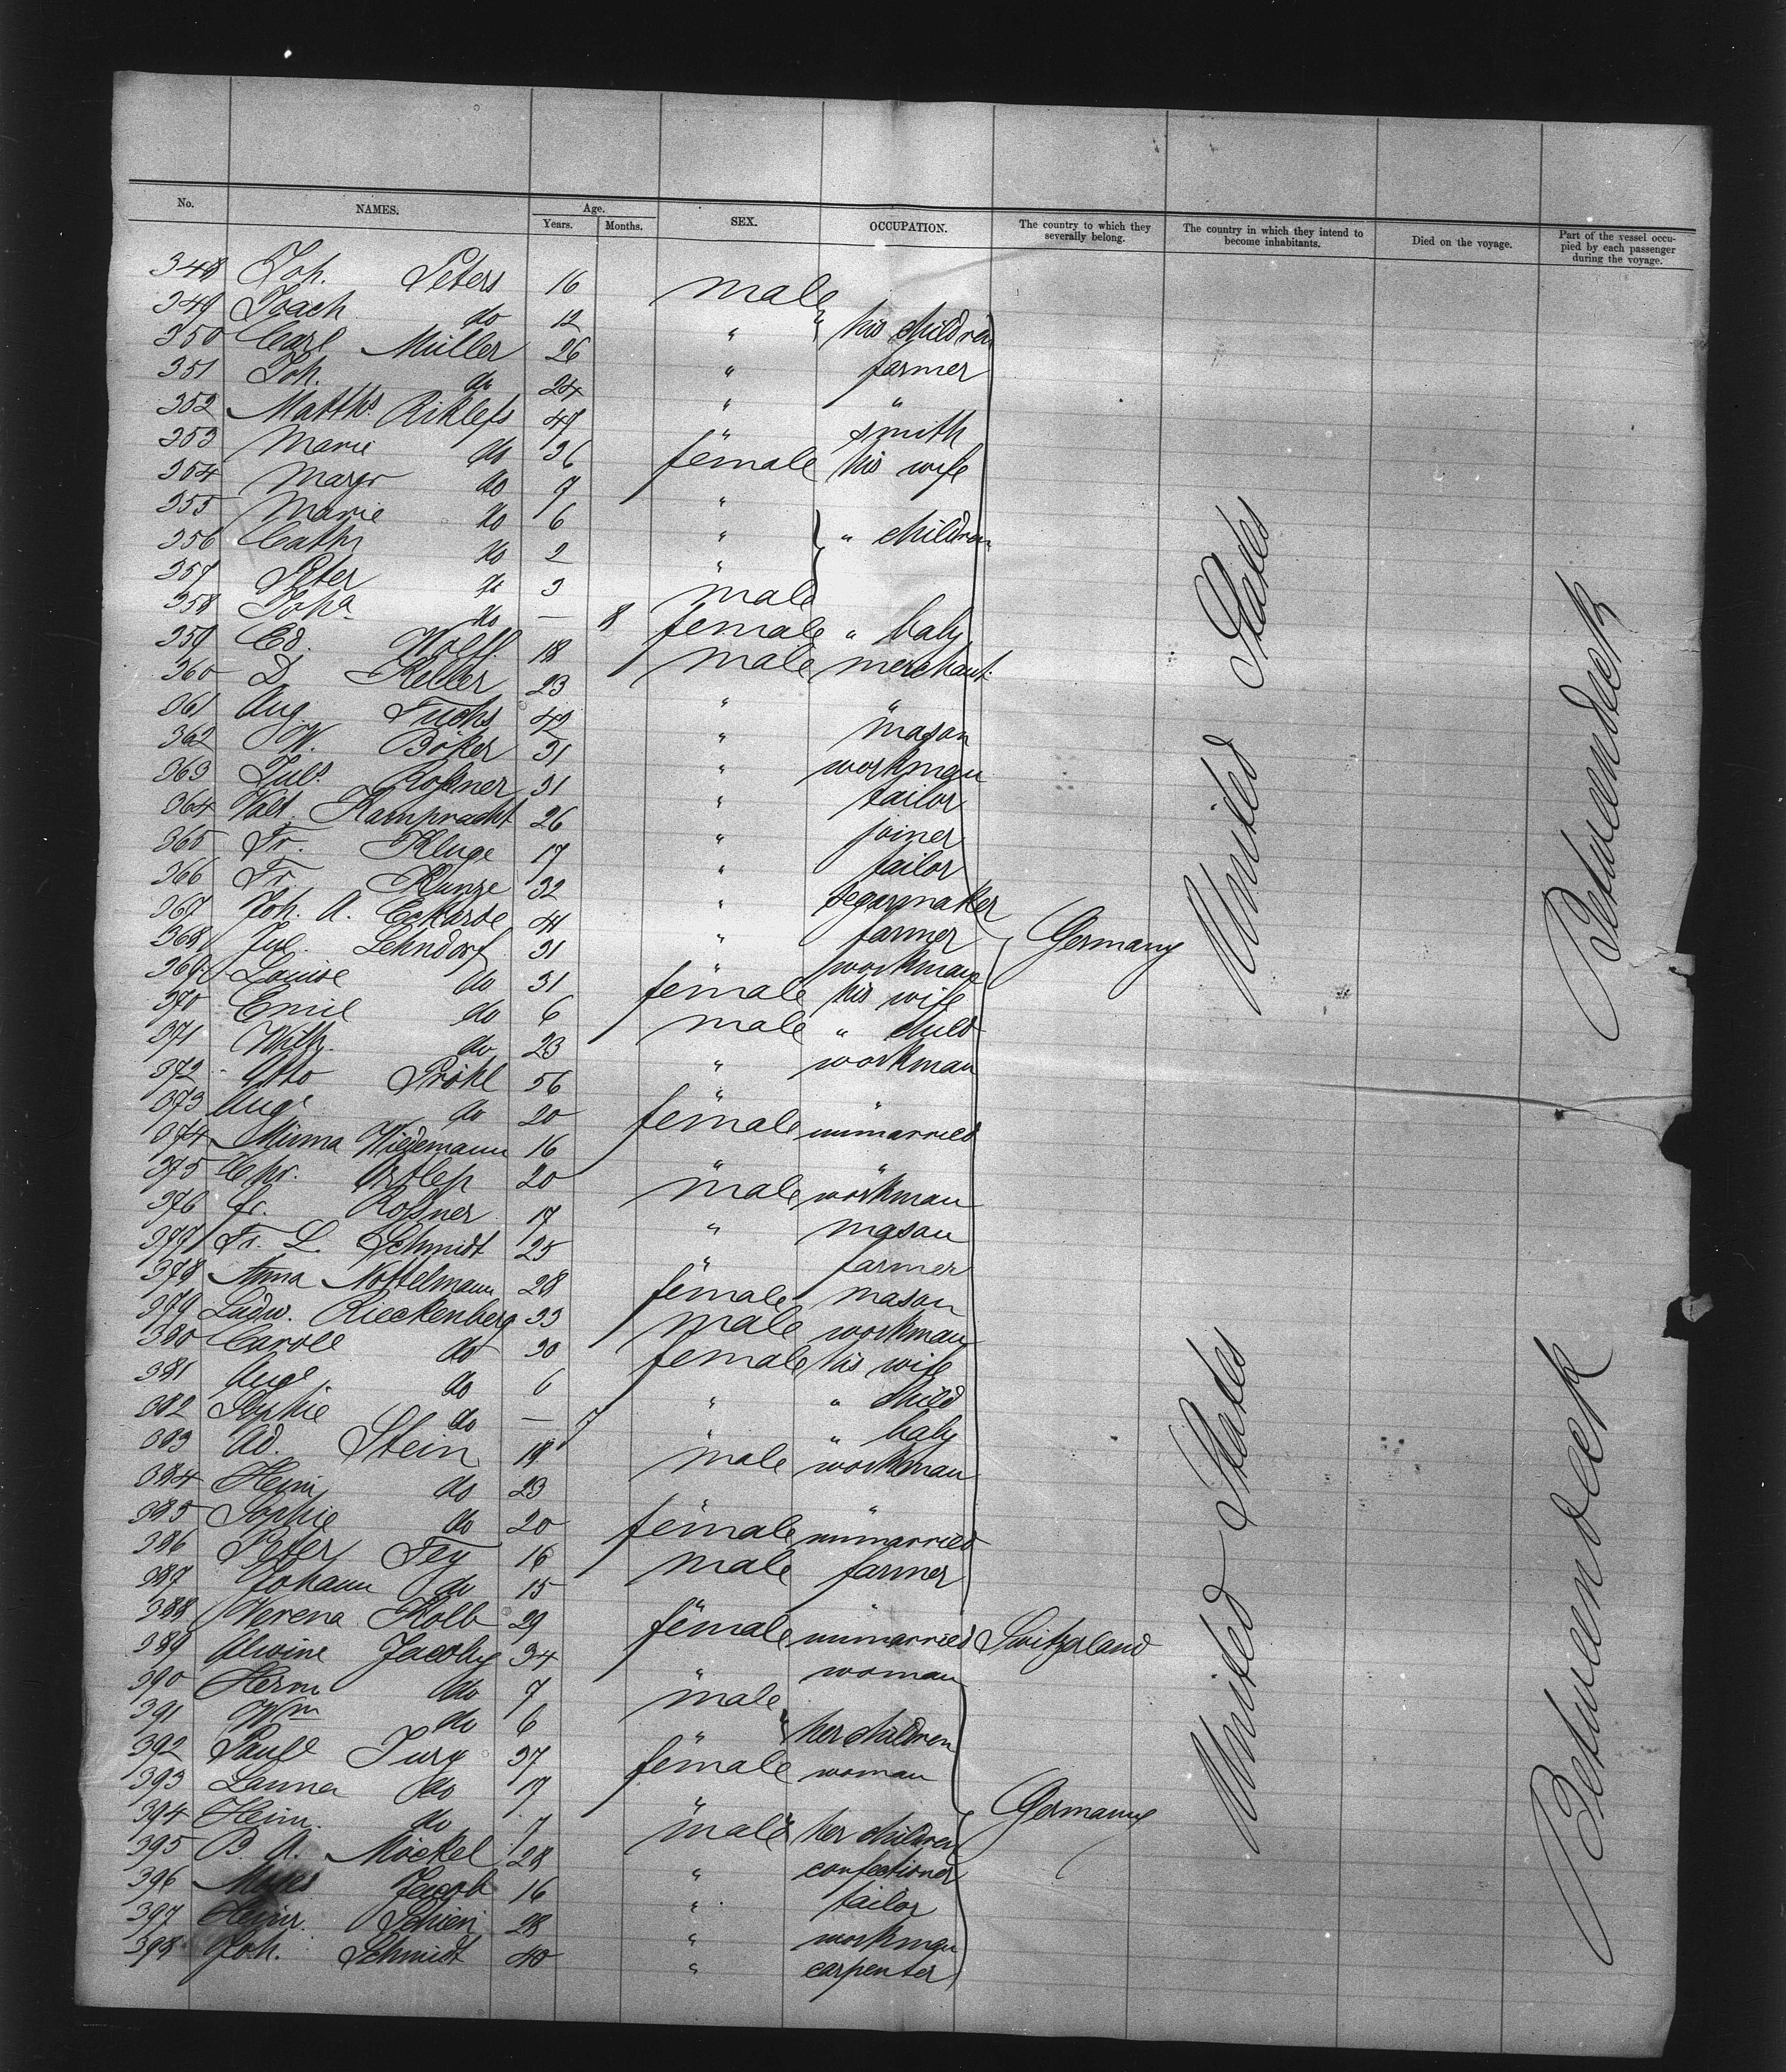 No. NAMES. Age. Years. Months. SEX. OCCUPATION. The country to which they severally belong. The country in which they intend to become inhabitants. Died on the voyage. Part of the vessel occupied by each passenger during the voyage.
348 Joh. Peters 16 male
349 Joach do 12 " " his children
350 Carl Müller 26 " farmer
351 Joh. do 24 " "
352 Matths Riklefs 47 " smith
353 Marie do 36 female his wife
354 Margr do 7 "
355 Marie do 6 " " children
356 Cathr do 2 "
357 Peter do 3 male
358 Joha do — 8 female " baby
359 Ed. Wolff 18 male merchant
360 D Keller 23 " "
361 Aug. Fuchs 42 " mason
362 W. Böker 31 " workman
363 Juls Roßner 31 " tailor
364 Valt. Kampracht 26 " joiner
365 Fr. Kluge 17 " tailor
366 Fr. Kunze 32 " segarmaker
367 Joh. A. Eckarde 41 " farmer
368 Jul. Lehndorf 31 " workman
369 Louise do 31 female his wife
370 Emil do 6 male " child
371 Wilh. do 23 " workman
372 Otto Pröhl 56 " "
373 Auge do 20 female unmarried
374 Minna Wiedemann 16 " "
375 Chr. Ortlep 20 male workman
376 Fr. Roßner 17 " mason
377 Fr. L. Schmidt 25 " farmer
378 Anna Nottelmann 28 female mason
379 Ludw. Rieckenberg 33 male workman
380 Carole do 30 female his wife
381 Auge do 6 " " child
382 Sophie do — 7 " " baby
383 Ad. Stein 18 male workman
384 Heinr. do 23 " "
385 Sophie do 20 female unmarried
386 Peter Fey 16 male farmer
387 Johann do 15 " "
388 Verena Kolb 29 female unmarried Switzerland
389 Alwine Jacoby 34 " woman
390 Herm do 7 male
391 Wm do 6 " her children
392 Paule Jury 37 female woman
393 Lanna do 17 "
394 Heinr. do 7 male her children
395 B. A. Möckel 28 " confectioner
396 Moses Jacob 16 " tailor
397 Heinr. 28 " workman
398 Joh. Schmidt 40 " carpenter
Germany
Germany
United States
United States
Betweendeck
Betweendeck